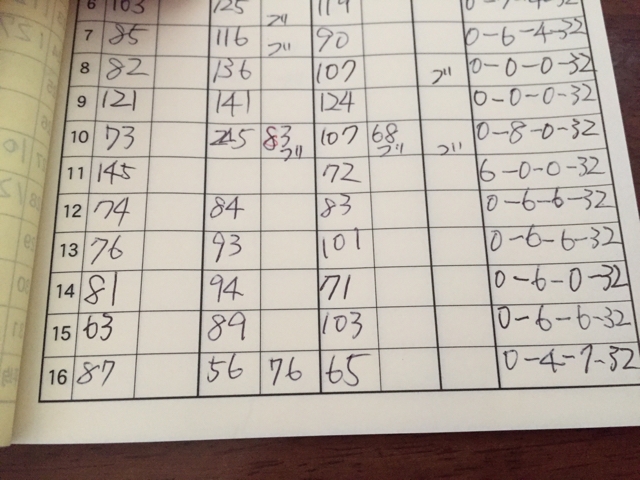 6 103 125 114
7 85 116 ブリ 90 0-6-4-32
8 82 136 107 ブリ 0-0-0-32
9 121 141 124 0-0-0-32
10 73 45 83 ブリ 107 68 ブリ ブリ 0-8-0-32
11 145 72 6-0-0-32
12 74 84 83 0-6-6-32
13 76 93 101 0-6-6-32
14 81 94 71 0-6-0-32
15 63 89 103 0-6-6-32
16 87 56 76 65 0-4-7-32